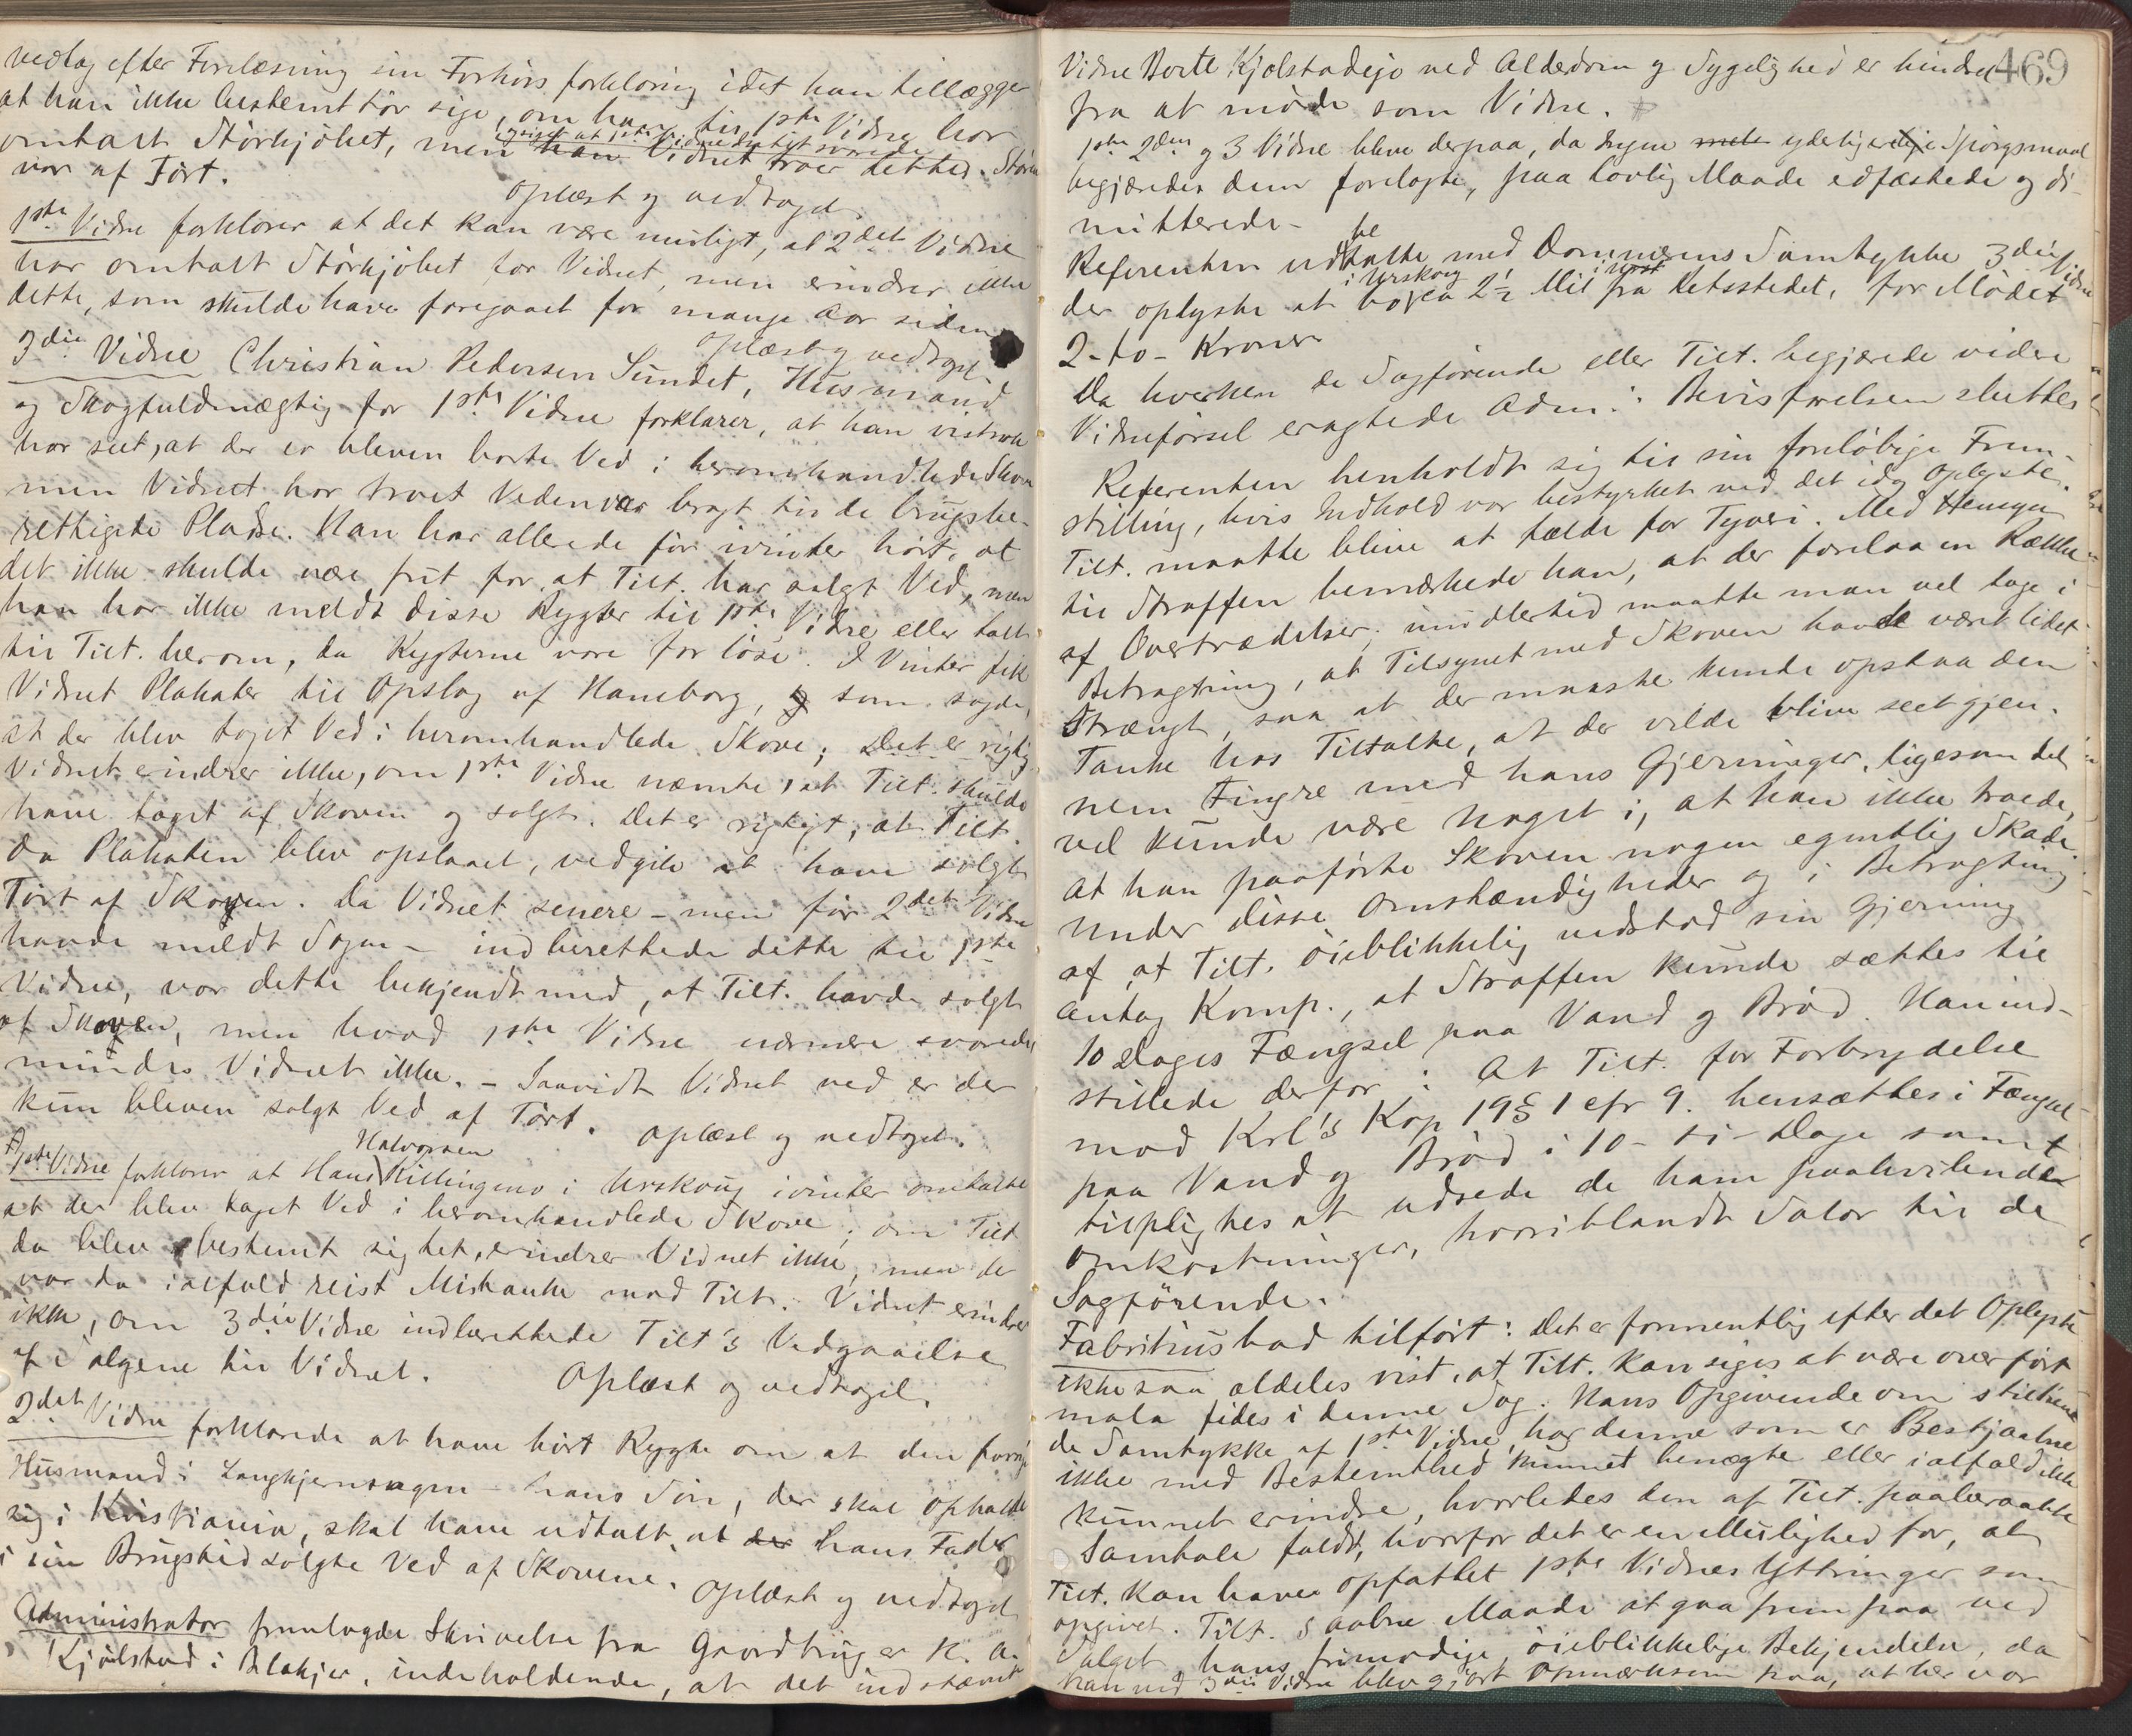 vedtog efter Forelæsning sin Forhörs forklaring idet han tillægger
at han ikke bestemt tör sige, om han til 1ste Vidne har
omtalt Störkjöbet, men han Vidnet troer dette.
var af Tört.
Oplæst og vedtaget.
1ste Vidne forklarer at det kan være muligt, at 2det Vidne
har omtalt Störkjöbet for Vidnet, men erindrer ikke
dette, som skulde have foregaaet for mange Aar siden
Oplæst og vedtaget
3die Vidne Christian Pedersen Sundet, Husmand
og Skogfuldmægtig for 1ste Vidne forklarer, at han vistnok
har seet, at der er bleven borte Ved i heromhandlede Skove
men Vidnet har troet Veden var bragt til de brugsbe-
rettigede Pladse. Han har allerede för ivinter hört, at
det ikke skulde være frit for, at Tilt. har solgt Ved, men
han har ikke meldt disse Rygter til 1ste Vidne eller talt
til Tilt. herom, da Rygterne vare for löse. I Vinter fik
Vidnet Plakater til Opslag af Haneborg, som sagde,
at der blev taget Ved i heromhandlede Skove; Det er rigtig
Vidnet erindrer ikke, om 1ste Vidne nævnte, at Tilt. skulde
have taget af Skoven og solgt. Det er rigtigt, at Tilt.
da Plakaten blev opslaaet, vedgik at have solgt
Tört af Skoven. Da Vidnet senere – men för 2det Vidne
havde meldt Sagen – indberettede dette til 1ste
Vidne, var dette bekjendt med, at Tilt. havde solgt
af Skogen, men hvad 1ste Vidne nærmere svarede,
mindes Vidnet ikke. – Saavidt Vidnet ved er der
kun bleven solgt Ved af Tört. Oplæst og vedtaget.
Halvorsen
1ste Vidne forklarer at Hans Killingmo i Urskoug ivinter omtalte
at der blev taget Ved i heromhandlede Skove; om Tilt
da blev bestemt sigtet, erindrer Vidnet ikke, men der
var da ialfald reist Mistanke mod Tilt. Vidnet erindrer
ikke, om 3die Vidne indberettede Tilt's Vedgaaelse
af Salgene til Vidnet. Oplæst og vedtaget.
2det Vidne forklarede at have hört Rygte om at den forrige
Husmand i Langkjernsagen – hans Sön, der skal opholde
sig i Kristiania, skal have udtalt, at der hans Fader
i sin Brugstid solgte Ved af Skovene.
Oplæst og vedtaget
Administrator fremlagde Skrivelse fra Gaardbruger K. A.
Kjölstad i Blakjer, indeholdende, at det indstævnte
469
Vidne Borte Kjolstadejo ved Alderdom og Sygelighed er hindret
fra at möde som Vidne.
1ste 2den og 3 Vidne bleve derpaa, da Ingen yderligere Spörgsmaal
begjæredes dem forelagte, paa lovlig Maade edfæstede og di-
mitterede –
Referenten udbetalte med Dommerens Samtykke 3die Vidne
i Urskoug
der oplyste at bo ca 2½ Mil fra Retsstedet, for Mödet
2 – to – Kroner
Da hverken de Sagförende eller Tilt. begjærede videre
Vidneförsel eragtede Adm.: Bevisförelsen sluttes
Referenten henholdt sig til sin forelöbige Frem-
stilling, hvis Indhold var bestyrket ved det idag Oplyste.
Tilt. maatte blive at fælde for Tyveri. Med Hensyn
til Straffen bemærkede han, at der forelaa en Række
af Overtrædelser; imidlertid maatte man vel tage i
Betragtning, at Tilsynet med Skoven havde været lidet
Strængt, saa at der maaske kunde opstaa den
Tanke hos Tiltalte, at der vilde blive seet gjen-
nem Fingre med hans Gjerninger, ligesom det
vel kunde være noget i, at han ikke troede,
at han paaförte Skoven nogen egentlig Skade.
Under disse Omstændigheder og i Betragtning
af, at Tilt. öieblikkelig vedstod sin Gjerning
antog Komp., at Straffen kunde sættes til
10 Dages Fængsel paa Vand og Bröd. Han ind-
stillede derfor: At Tilt. for Forbrydelse
mod Krl's Kap 19 § 1 cfr 9. hensættes i Fængsel
paa Vand og Bröd i 10 – ti – Dage samt
tilpligtes at udrede de ham paahvilende
Omkostninger, hvoriblandt Salær til de
Sagförende.
Fabritius bad tilfört: Det er formentlig efter det Oplyste
ikke saa aldeles vist, at Tilt. kan siges at være overfört
mala fides i denne Sag. Hans Opgivende om stiltien-
de Samtykke af 1ste Vidne, har denne som er Bestjaalne
ikke med Bestemthed kunnet benægte eller ialfald ikke
kunnet erindre, hvorledes den af Tilt. paaberaabte
Samtale faldt, hvorfor det er en Mulighed for, at
Tilt. kan have opfattet 1ste Vidnes Yttringer som
opgivet. Tilt.s aabne Maade at gaa frem paa ved
Salget, hans frimodige öieblikkelige Bekjendelse, da
han ved 3die Vidne blev gjort opmærksom paa, at her var